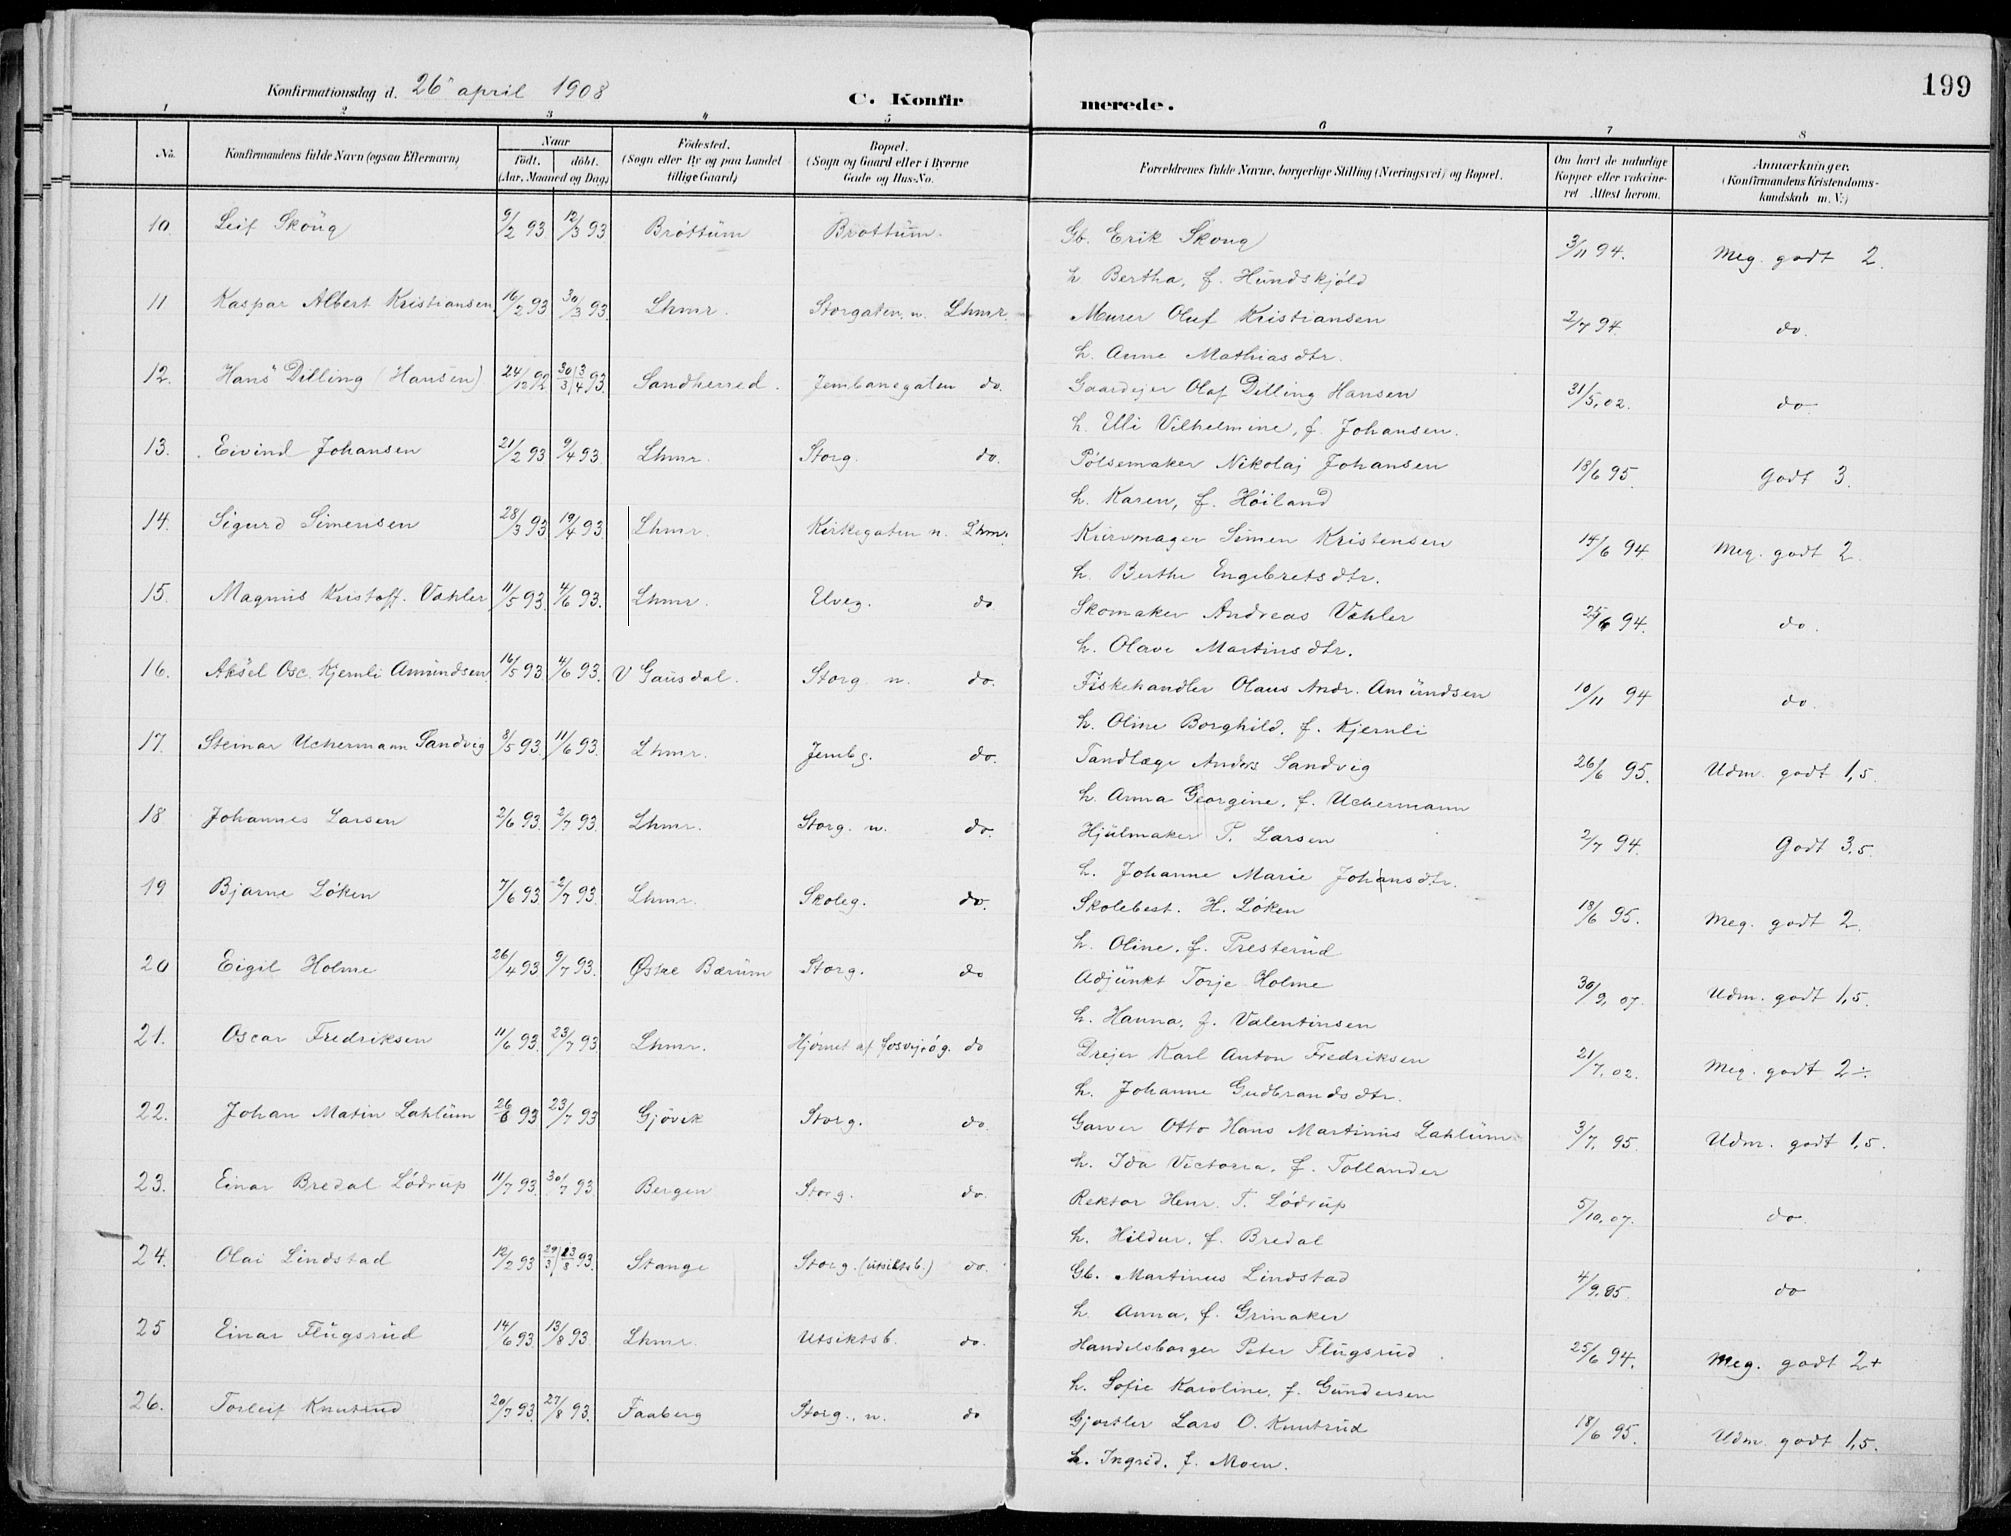 199
Konfirmationsdag d. 26' april 1908
C. Konfir merede.
1 2 3 4 5 6 7 8
No. Konfirmandens fulde Navn (ogsaa Efternavn) Naar Födested. Bopæl. Forældrenes fulde Navne, borgerlige Stilling (Næringsvei) og Bopæl. Om havt de naturlige Anmærkninger.
födt. döbt. (Sogn eller By og paa Landet (Sogn og Gaard eller i Byerne Kopper eller vakcine- (Konfirmandens Kristendoms-
(Aar, Maaned og Dag) tillige Gaard) Gade og Hus-No. ret Attest herom. kundskab m. V.)
10. Leif Skoug 9/2 93 12/3 93 Bröttum Brottum. Gb. Erik Skoug 3/11 94. Meg. godt 2.
h Bertha, f. Hundskjöld
11 Kaspar Albert Kristiansen 16/2 93 30/3 93. Lhmr. Storgaten, n. Lhmr. Murer Oluf Kristiansen 2/7 94 do.
h. Anne Mathiasdtr.
12. Hans Dilling (Hansen) 24/12 92 30/3 | 3/4 93. Sandherred. Jernbanegaten do. Gaardejer Olaf Dilling Hansen 31/5, 02. do
h. Ulli Vilhelmine, f. Johansen.
13. Eivind Johansen 21/2 93 9/4 93. Lhmr. Storg. do. Pölsemaker Nikolaj Johansen 18/6 95. Godt 3.
h. Karen, f. Höiland
14. Sigurd Simensen 28/3 93 19/4 93. Lhmr. Kirkegaten n. Lhmr. Kurvmager Simen Kristensen 14/6 94 Meg. godt 2.
h. Berthe Engebretsdtr.
15. Magnus Kristoff. Væhler 11/5 93. 4/6 93. Lhmr. Elveg. do. Skomaker Andreas Væhler 25/6 94. do.
h. Olave Martinsdtr.
16. Aksel Osc. Kjernli Amundsen 16/5 93. 4/6 93. V Gausdal. Storg n. do. Fiskehandler Olaus Andr. Amundsen 10/11 94 do.
h. Oline Borghild, f. Kjernli
17. Steinar Uchermann Sandvig 8/5 93. 11/6 93. Lhmr. Jernbg. do. Tandlæge Anders Sandvig 26/6 95. Udm. godt 1,5.
h. Anna Georgine, f. Uchermann
18 Johannes Larsen 2/6 93. 2/7 93. Lhmr. Storg. n. do. Hjulmaker P. Larsen 2/7 94. Godt 3,5.
h. Johanne Marie Johansdtr.
19 Bjarne Löken 7/6 93. 2/7 93. Lhmr. Skoleg. do. Skolebest. H. Löken 18/6 95. Meg. godt 2.
h. Oline, f. Presterud
20 Eigil Holme 26/4 93 9/7 93. Østre Bærum Storg. do Adjunkt Torje Holme 30/9, 07. Udm. godt 1,5.
h. Hanna, f. Valentinsen
21. Oscar Fredriksen 11/6 93. 23/7 93. Lhmr. Hjörnet af do Drejer Karl Anton Fredriksen 21/7, 02. Meg. godt 2÷.
h. Johanne Gudbrandsdtr.
22. Johan Matin Lahlum 26/6 93 23/7 93 Gjövik Storg. do. Garver Otto Hans Martinus Lahlum 3/7, 95 Udm. godt 1,5.
h. Ida Victoria, f. Tollander
23. Einar Bredal Lödrup 11/7 93. 30/7 93 Bergen Storg. do. Rektor Henr. T. Lödrup 5/10, 07. do
h. Hildur, f. Bredal
24. Olai Lindstad 12/2 93 29/3 | 13/8 93. Stange Storg. (utsiktsb.) do. Gb. Martinus Lindstad 4/9, 95. do
h. Anna, f. Grinaker
25 Einar Flugsrud 14/6 93 13/8 93. Lhmr. Utsiktsb. do. Handelsborger Peter Flugsrud 25/6 94. Meg. godt 2+
h. Sofie Karoline, f. Gundersen
26. Torleif Knutrud 20/7 93. 27/8 93. Faaberg Storg., n. do Gjørtler Lars O. Knutrud 18/6 95. Udm. godt 1,5.
h. Ingrid, f. Moen.